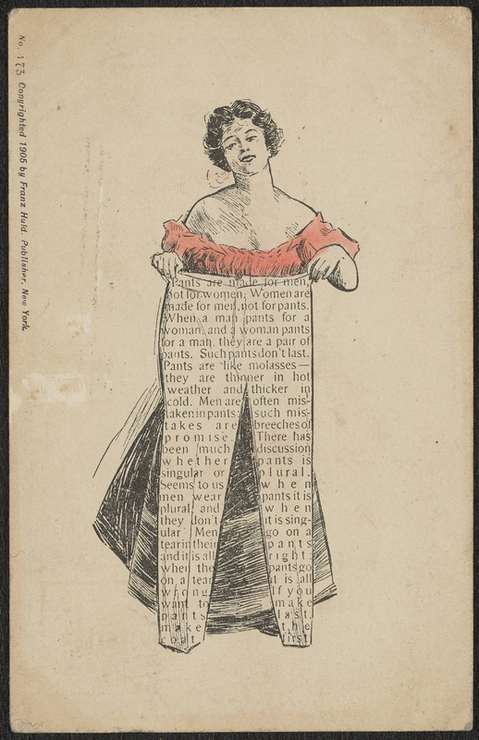 No. 173 Copyrighted 1905 by Franz Huld, Publisher, New York.
Pants are made for men,
not for women; Women are
made for men, not for pants.
When a man pants for a
woman, and a woman pants
for a man, they are a pair of
pants. Such pants don't last.
Pants are like molasses—
they are thinner in hot
weather and thicker in
cold. Men are often mis-
taken in pants such mis-
takes are breeches of
promise. There has
been much discussion
whether pants is
singular or plural.
Seems to us when
men wear pants it is
plural and when
they don't it is sing-
ular Men go on a
tear in their pants
and it is all right
when the pants go
on a tear it is all
wrong. If you
want to make
pants last.
make the
coat first.